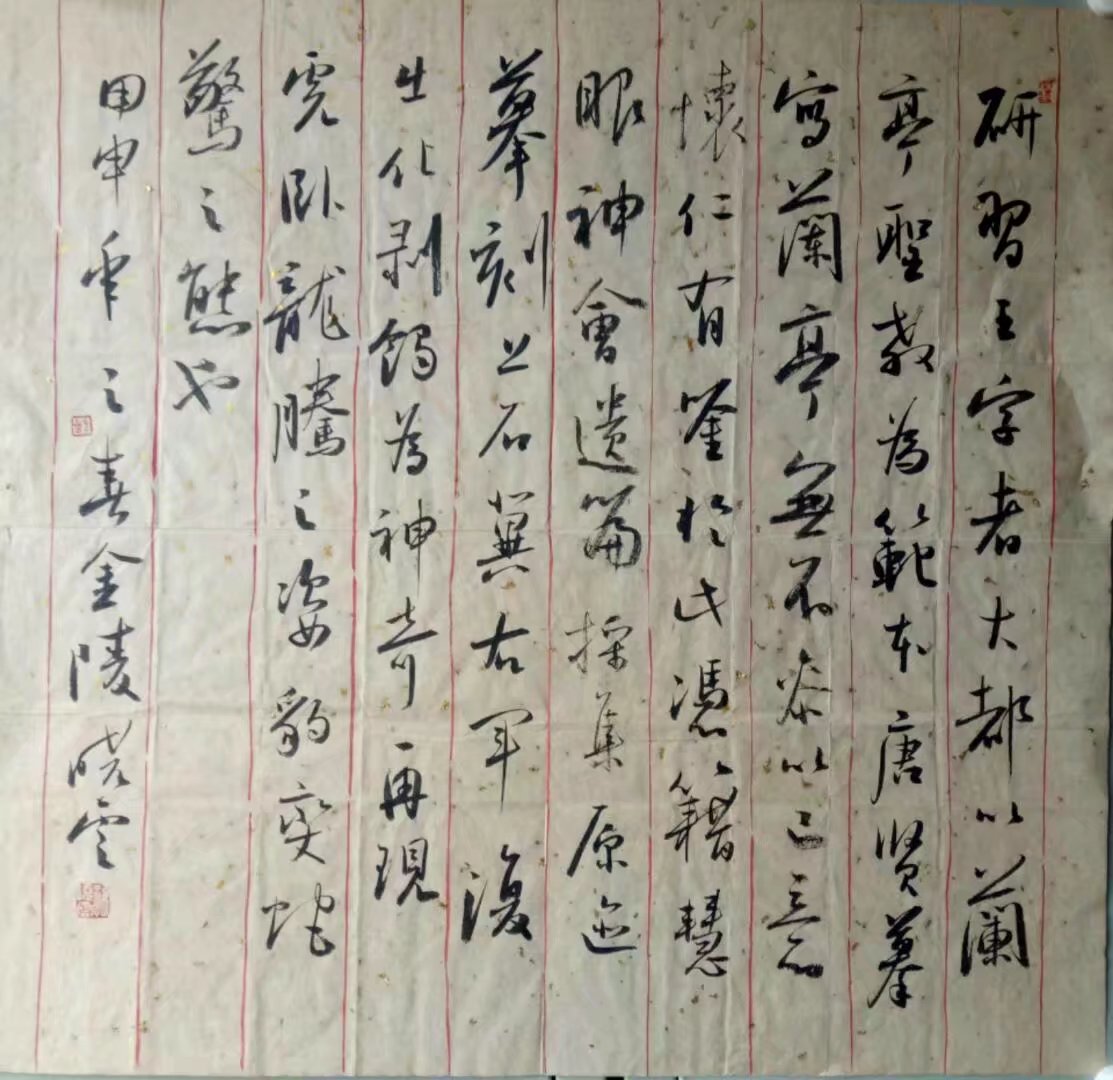 研習王字者大都以蘭
亭聖教為範本唐賢摹
寫蘭亭無不參以己意
懷仁有鑒於此憑籍慧
眼神會遺篇採集原迹
摹刻上石冀右軍復
生化剥蝕為神奇再現
虎卧龍騰之姿豹奕蛇
驚之態也
甲申年之春金陵曉雲